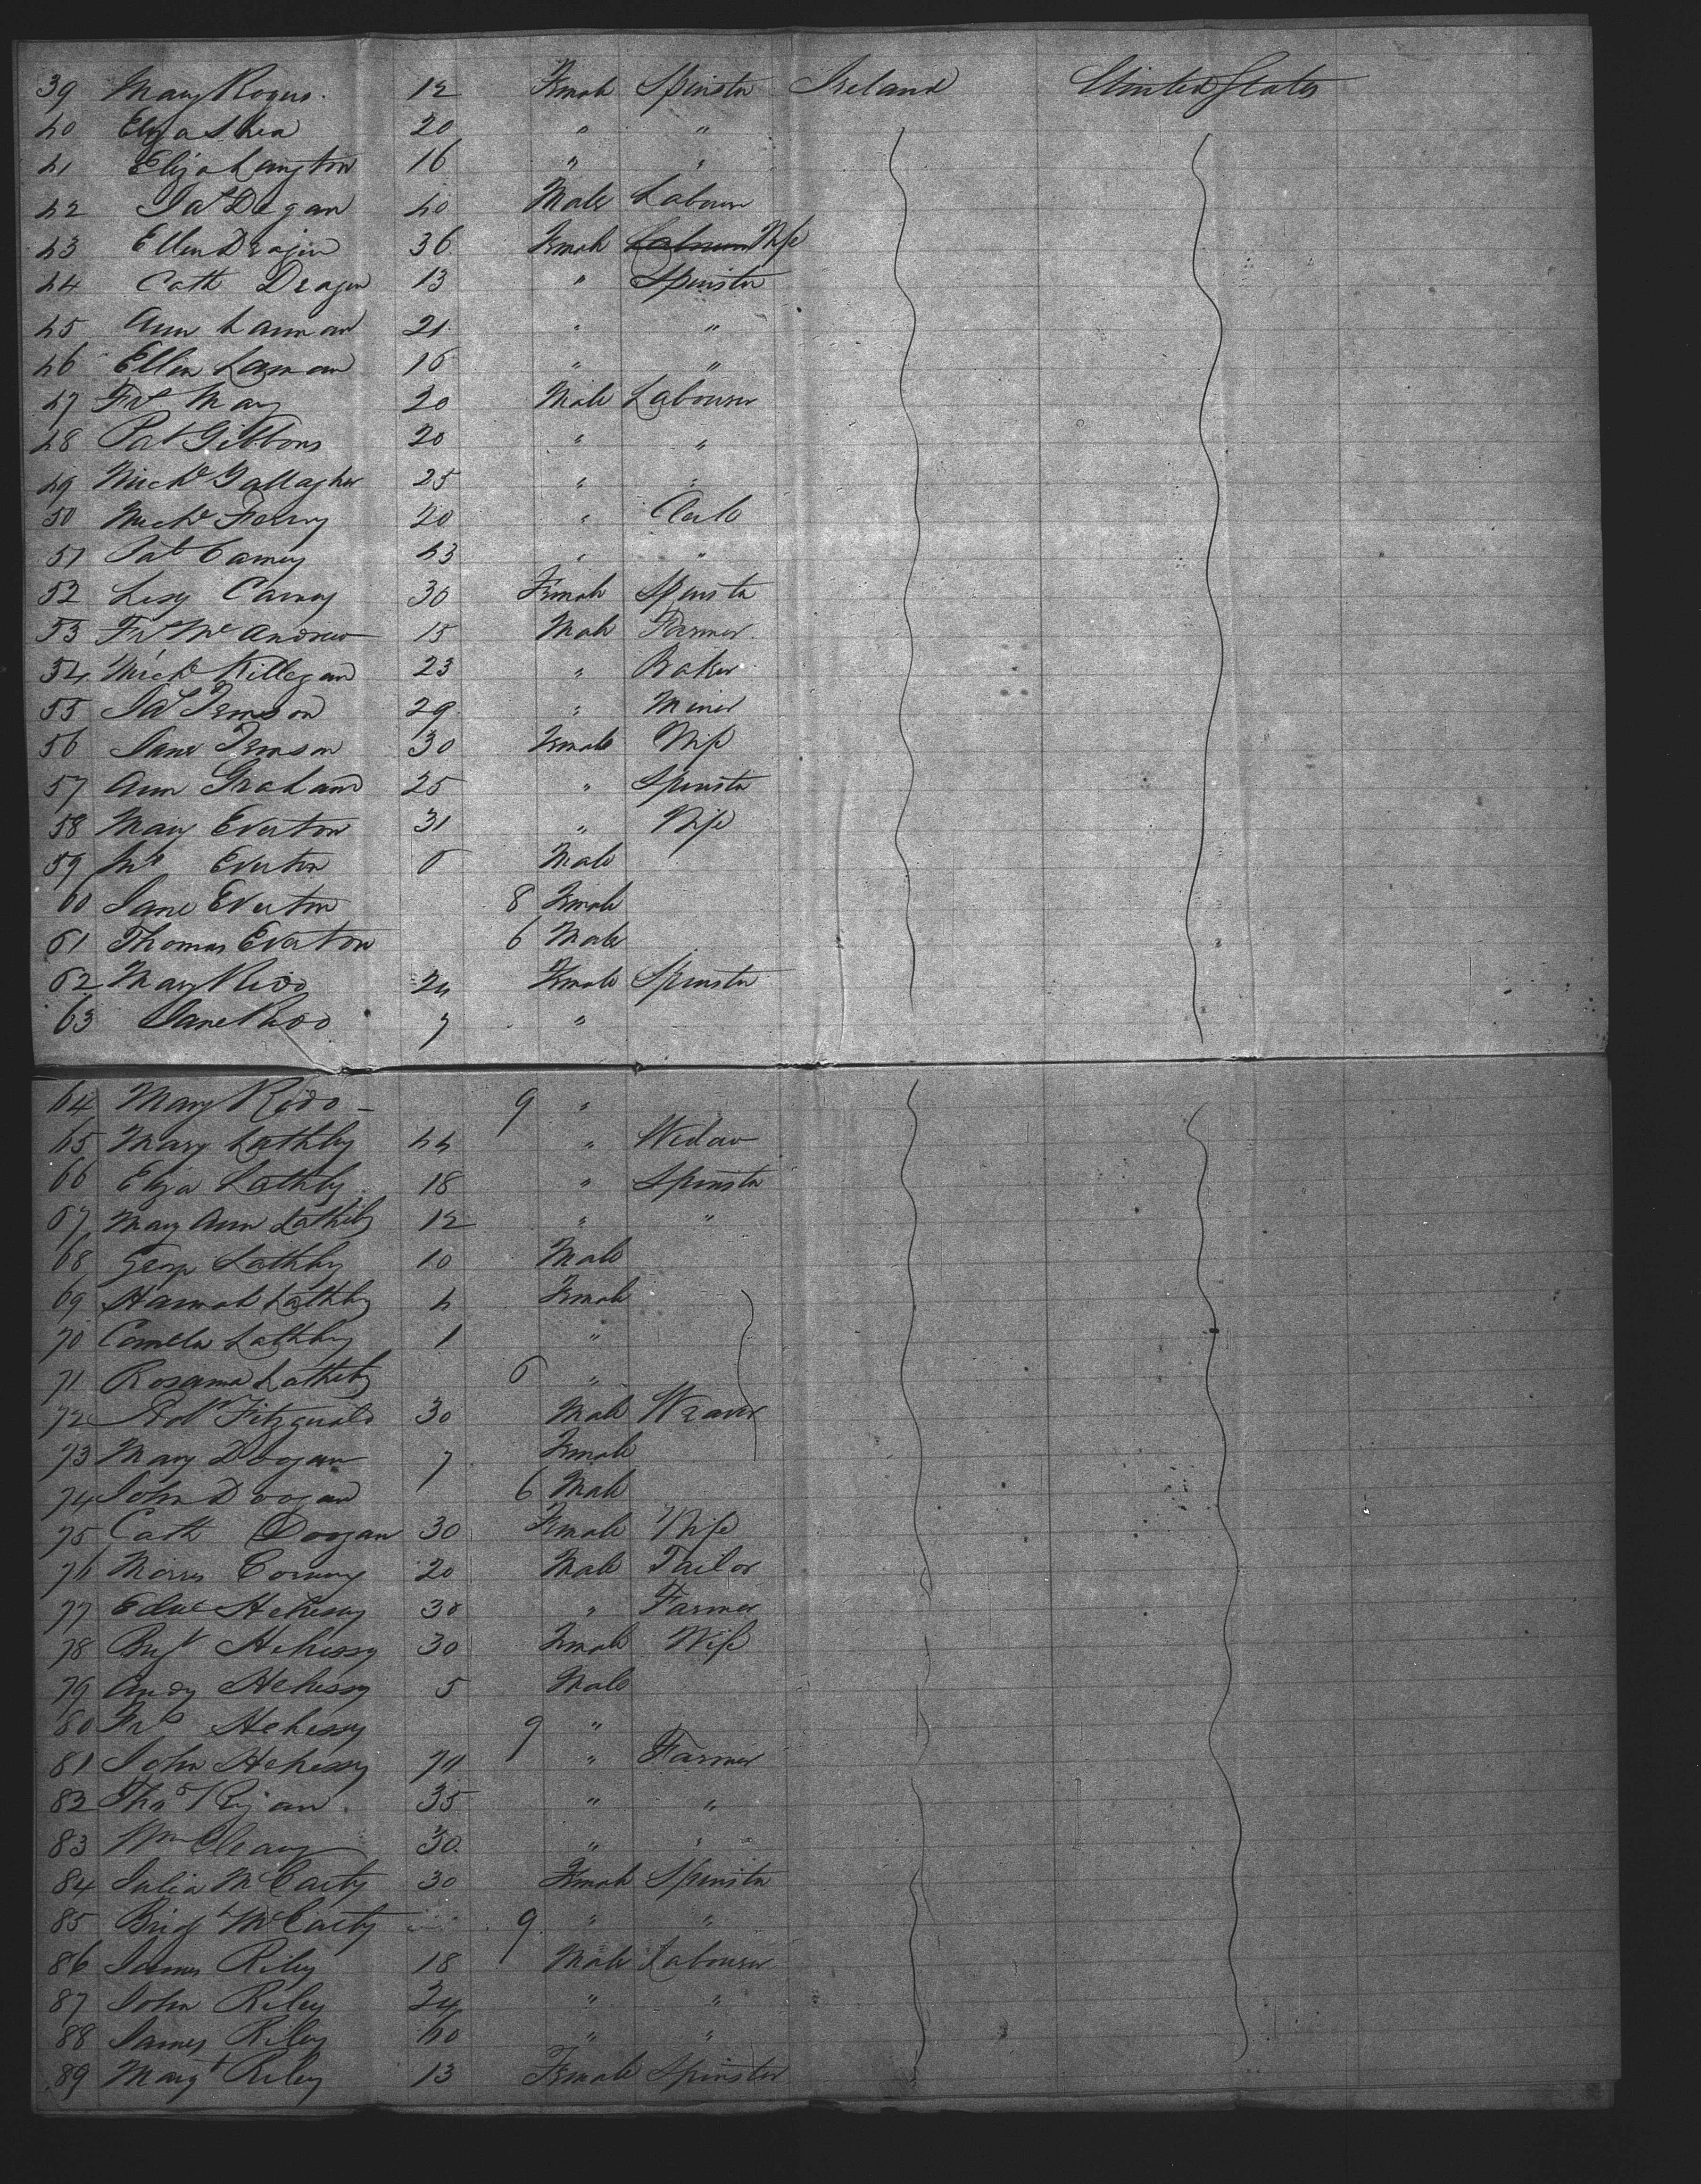 39 Mary Rogers. 12 Female Spinster Ireland United States
40 Eliza Shea 20 " "
41 Eliza Langton 16 " "
42 Jas Degan 40 Male Labourer
43 Ellen Dragin 36 Female Wife
44 Cath Dragin 13 " Spinster
45 Ann Lannan 21 " "
46 Ellen Lannan 16 " "
47 Frs May 20 Male Labourer
48 Pat Gibbons 20 " "
49 Michl Gallagher 25 " "
50 Michl Ferry 20 " Clerk
51 Pat Carney 43 " "
52 Carney 30 Female Spinster
53 Frs McAndrew 15 Male Farmer
54 Michl Killegan 23 " Baker
55 Jas Temson 29 " Miner
56 Jane Temson 30 Female Wife
57 Ann Graham 25 " Spinster
58 Mary Everton 31 " Wife
59 Everton 6 Male
60 Jane Everton 8 Female
61 Thomas Everton 6 Male
62 Mary Rido 24 Female Spinster
63 Jane Rido 7 "
64 Mary Rido — 9 "
65 Mary Lathby 44 " Widow
66 Eliza Lathby 18 " Spinster
67 Mary Ann Lathby 12 " "
68 George Lathby 10 Male
69 Hannah Lathby 4 Female
70 Lathby 1 "
71 Rosanna Lathby 6 "
72 Robt Fitzgerald 30 Male Weaver
73 Mary Doogan 7 Female
74 John Doogan 6 Male
75 Cath Doogan 30 Female Wife
76 Morris 20 Male Tailor
77 Edwd Hehessy 30 " Farmer
78 Hehessy 30 Female Wife
79 Andy Hehessy 5 Male
80 Frs Hehessy 9 "
81 John Hehessy 70 " Farmer
82 Thos Ryan 35 " "
83 Wm Cleary 30 " "
84 Julia McCarty 30 Female Spinster
85 Bridgt McCarty 9 " "
86 James Riley 18 Male Labourer
87 John Riley 24 " "
88 James Riley 60 " "
89 Margt Riley 13 Female Spinster